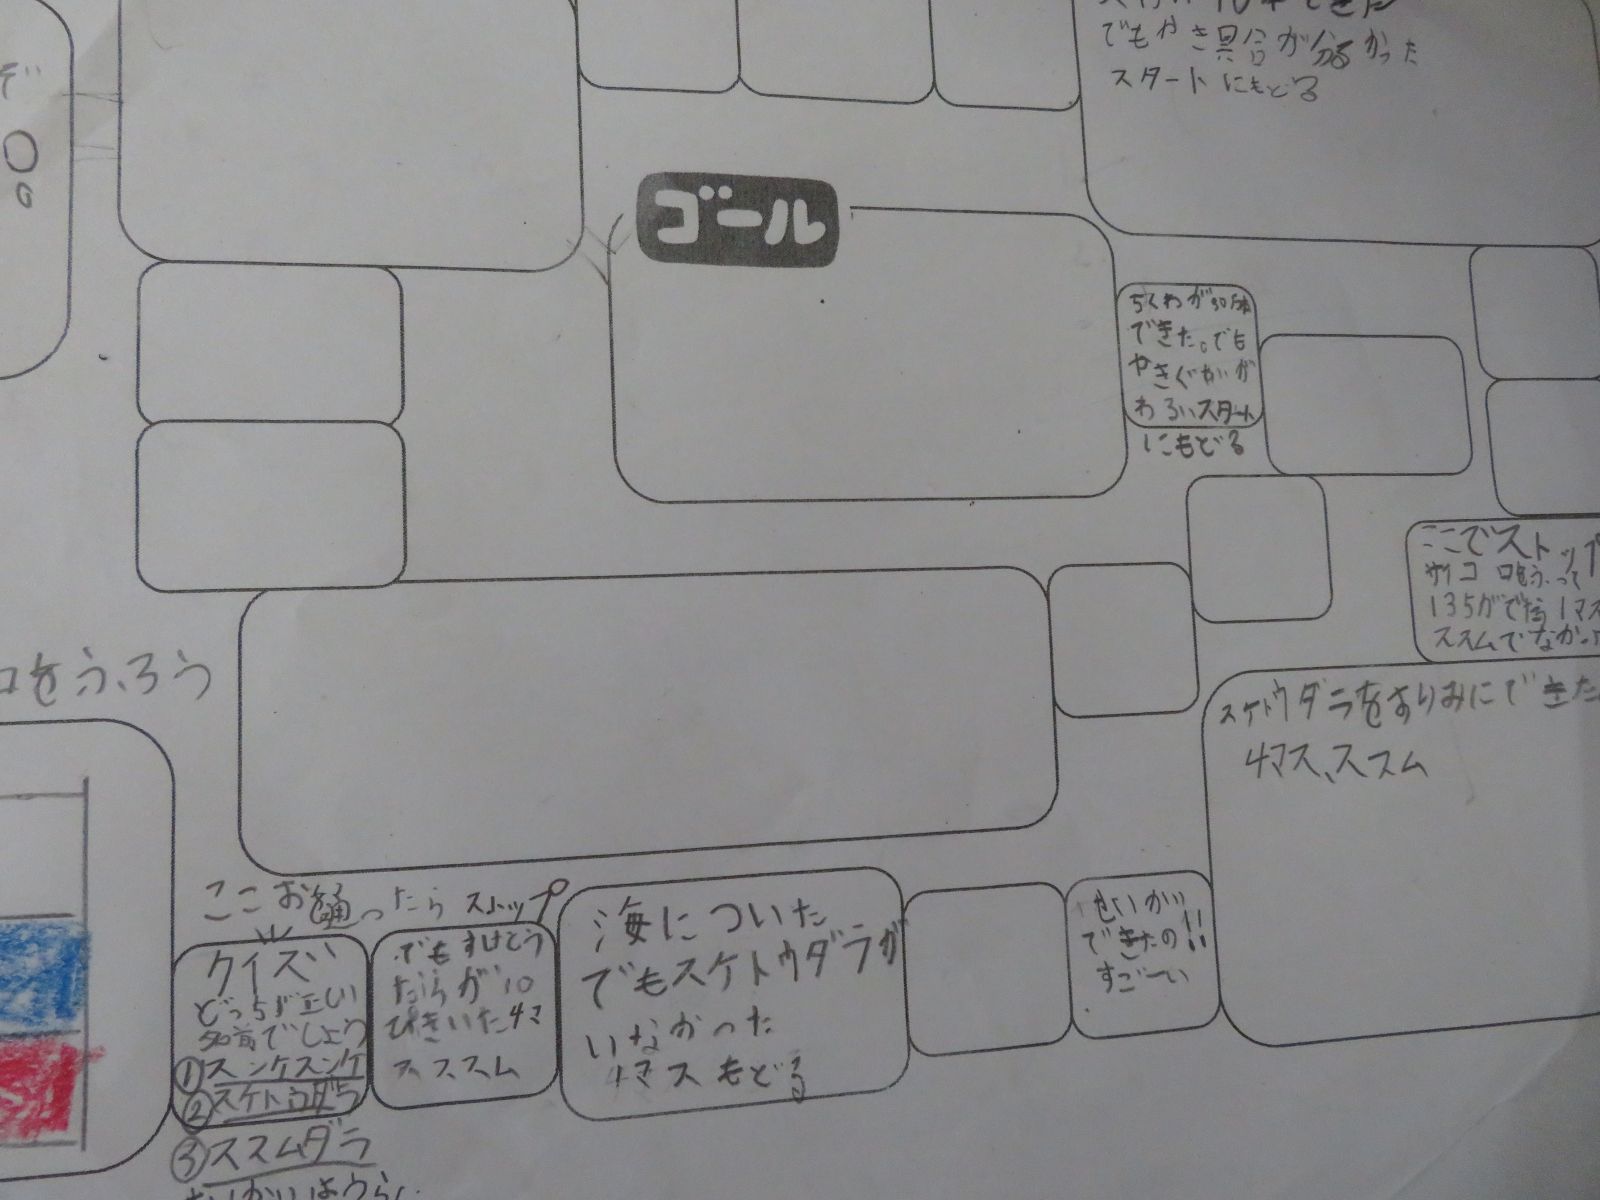 でもやき具合が分るかった
スタートにもどる
ゴール
ちくわが90本
できた。でも
やきぐわいが
わるいスタート
にもどる
ここでストップ
サイコロをふって
135がで 1マス
ススムでなかっ
ロをふろう
スケトウダラをすりみにできた
4マス、ススム
ここお通ったらストップ
クイズ
どっちが正しい
名前でしょう
①スンケスンケ
②スケトウダラ
③ススムダラ
でもすけとう
だらが10
ぴきいた4マ
スススム
海についた
でもスケトウダラが
いなかった
4マスもどる
せいかい
できたの!!
すごーい